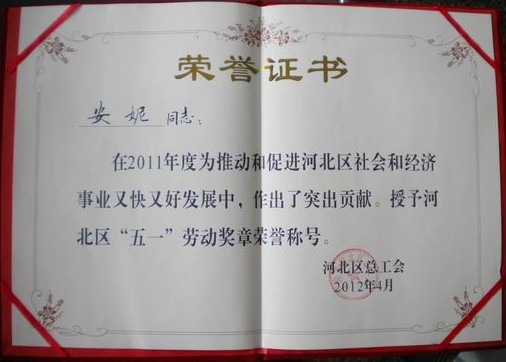 荣誉证书
安妮 同志：
在2011年度为推动和促进河北区社会和经济
事业又快又好发展中，作出了突出贡献。授予河
北区“五一”劳动奖章荣誉称号。
河北区总工会
2012年4月